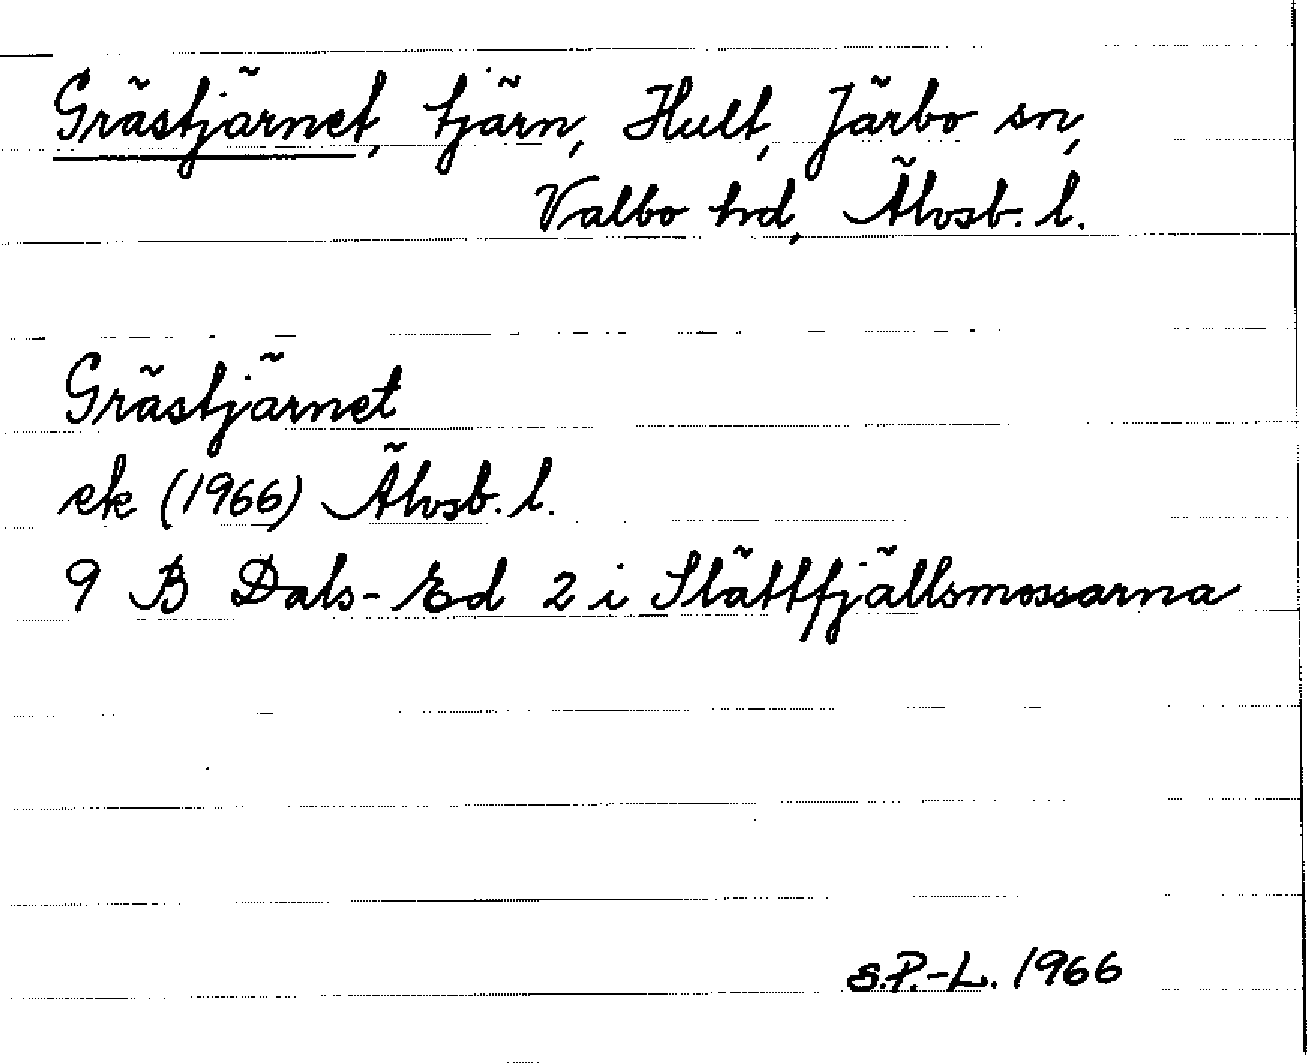 Grästjärnet, tjärn, Hult, Järbo sn,
Valbo hd, Älvsb. l.
Grästjärnet
ek (1966) Älvsb. l.
9 B Dals-Ed 2 i Slättfjällsmossarna
S.P.-L. 1966